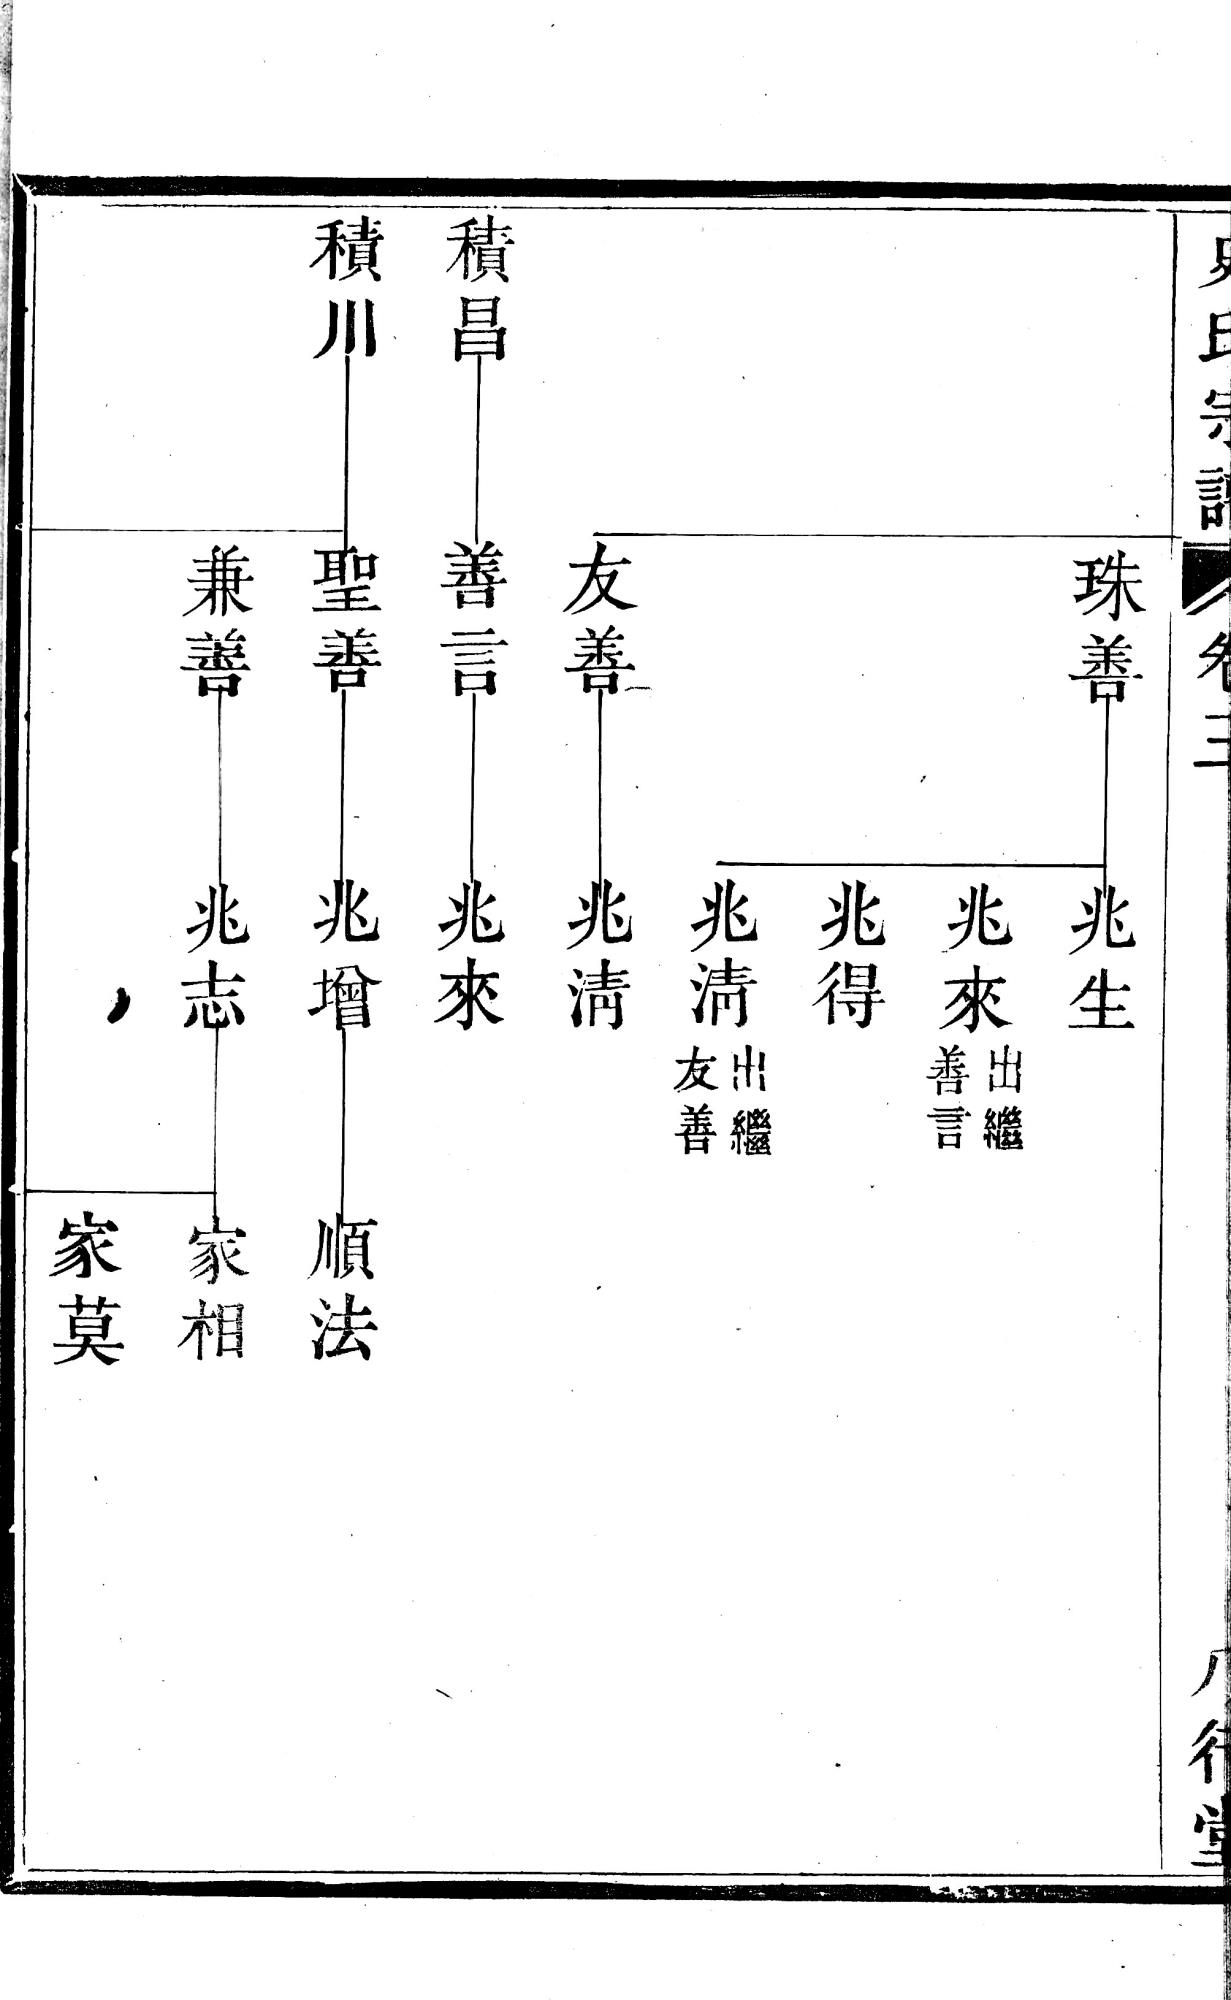 氏宗譜
卷三
八行堂
珠善
兆生
兆來
出繼
善言
兆得
兆淸
出繼
友善
友善
兆淸
積昌
善言
兆來
積川
聖善
兆增
順法
兼善
兆志
家相
家莫